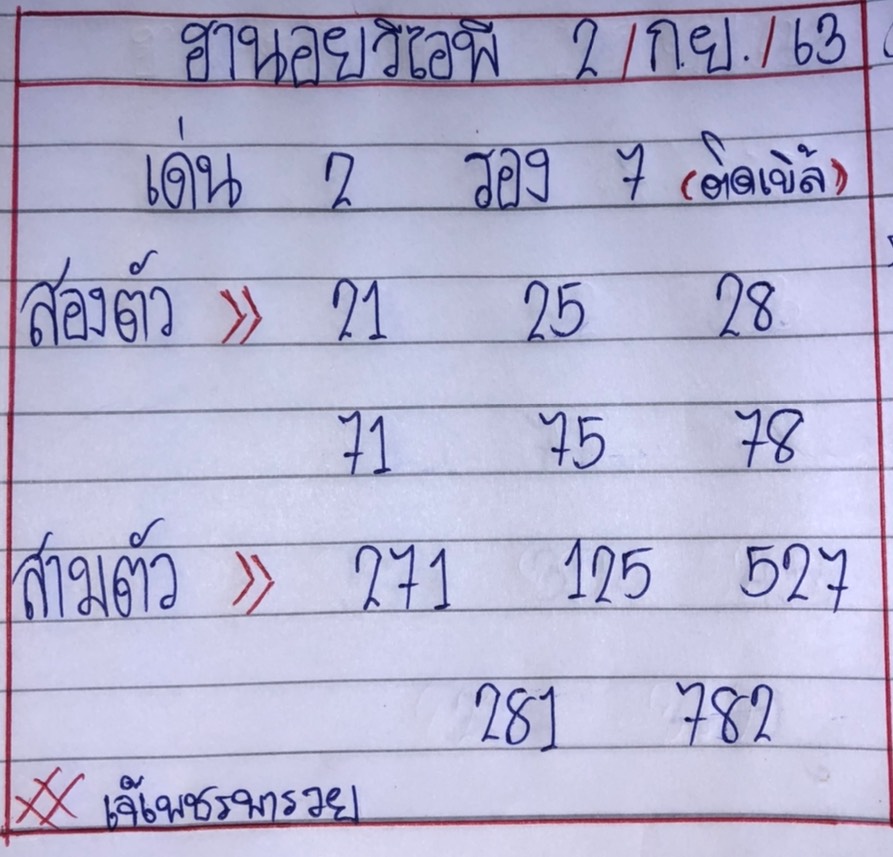 ฮานอยวีไอพี 2/ก.ย./63
เด่น 2 รอง 7 (ติดเบิ้ล)
สองตัว » 21 25 28
71 75 78
สามตัว » 271 125 527
281 782
เจ๊เพชรพารวย